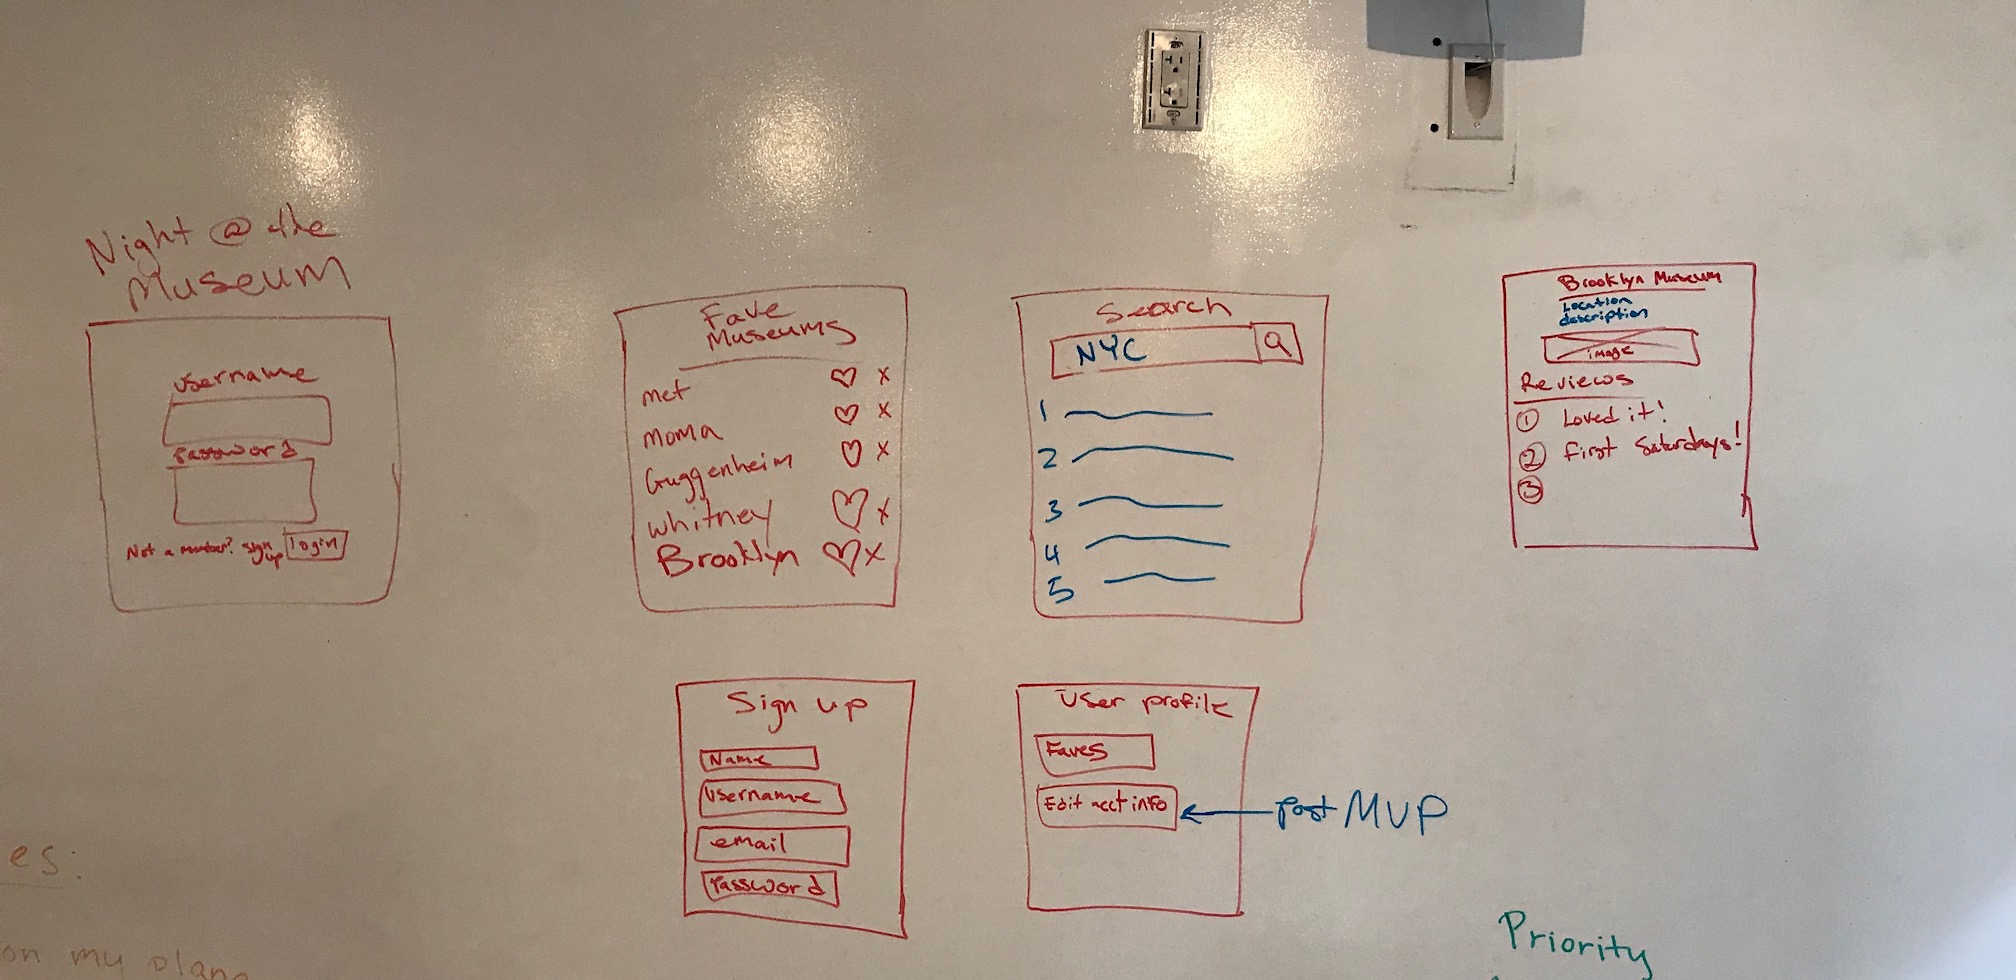 Night @ the
Museum
username
password
Not a member? sign up
login
Fave
Museums
met
moma
Guggenheim
whitney
Brooklyn
Search
NYC
1
2
3
4
5
Brooklyn Museum
Location
description
image
Reviews
1 Loved it!
2 first Saturdays!
3
Sign up
Name
Username
email
Password
User profile
Faves
Edit acct info
post MVP
es:
on my plane
Priority